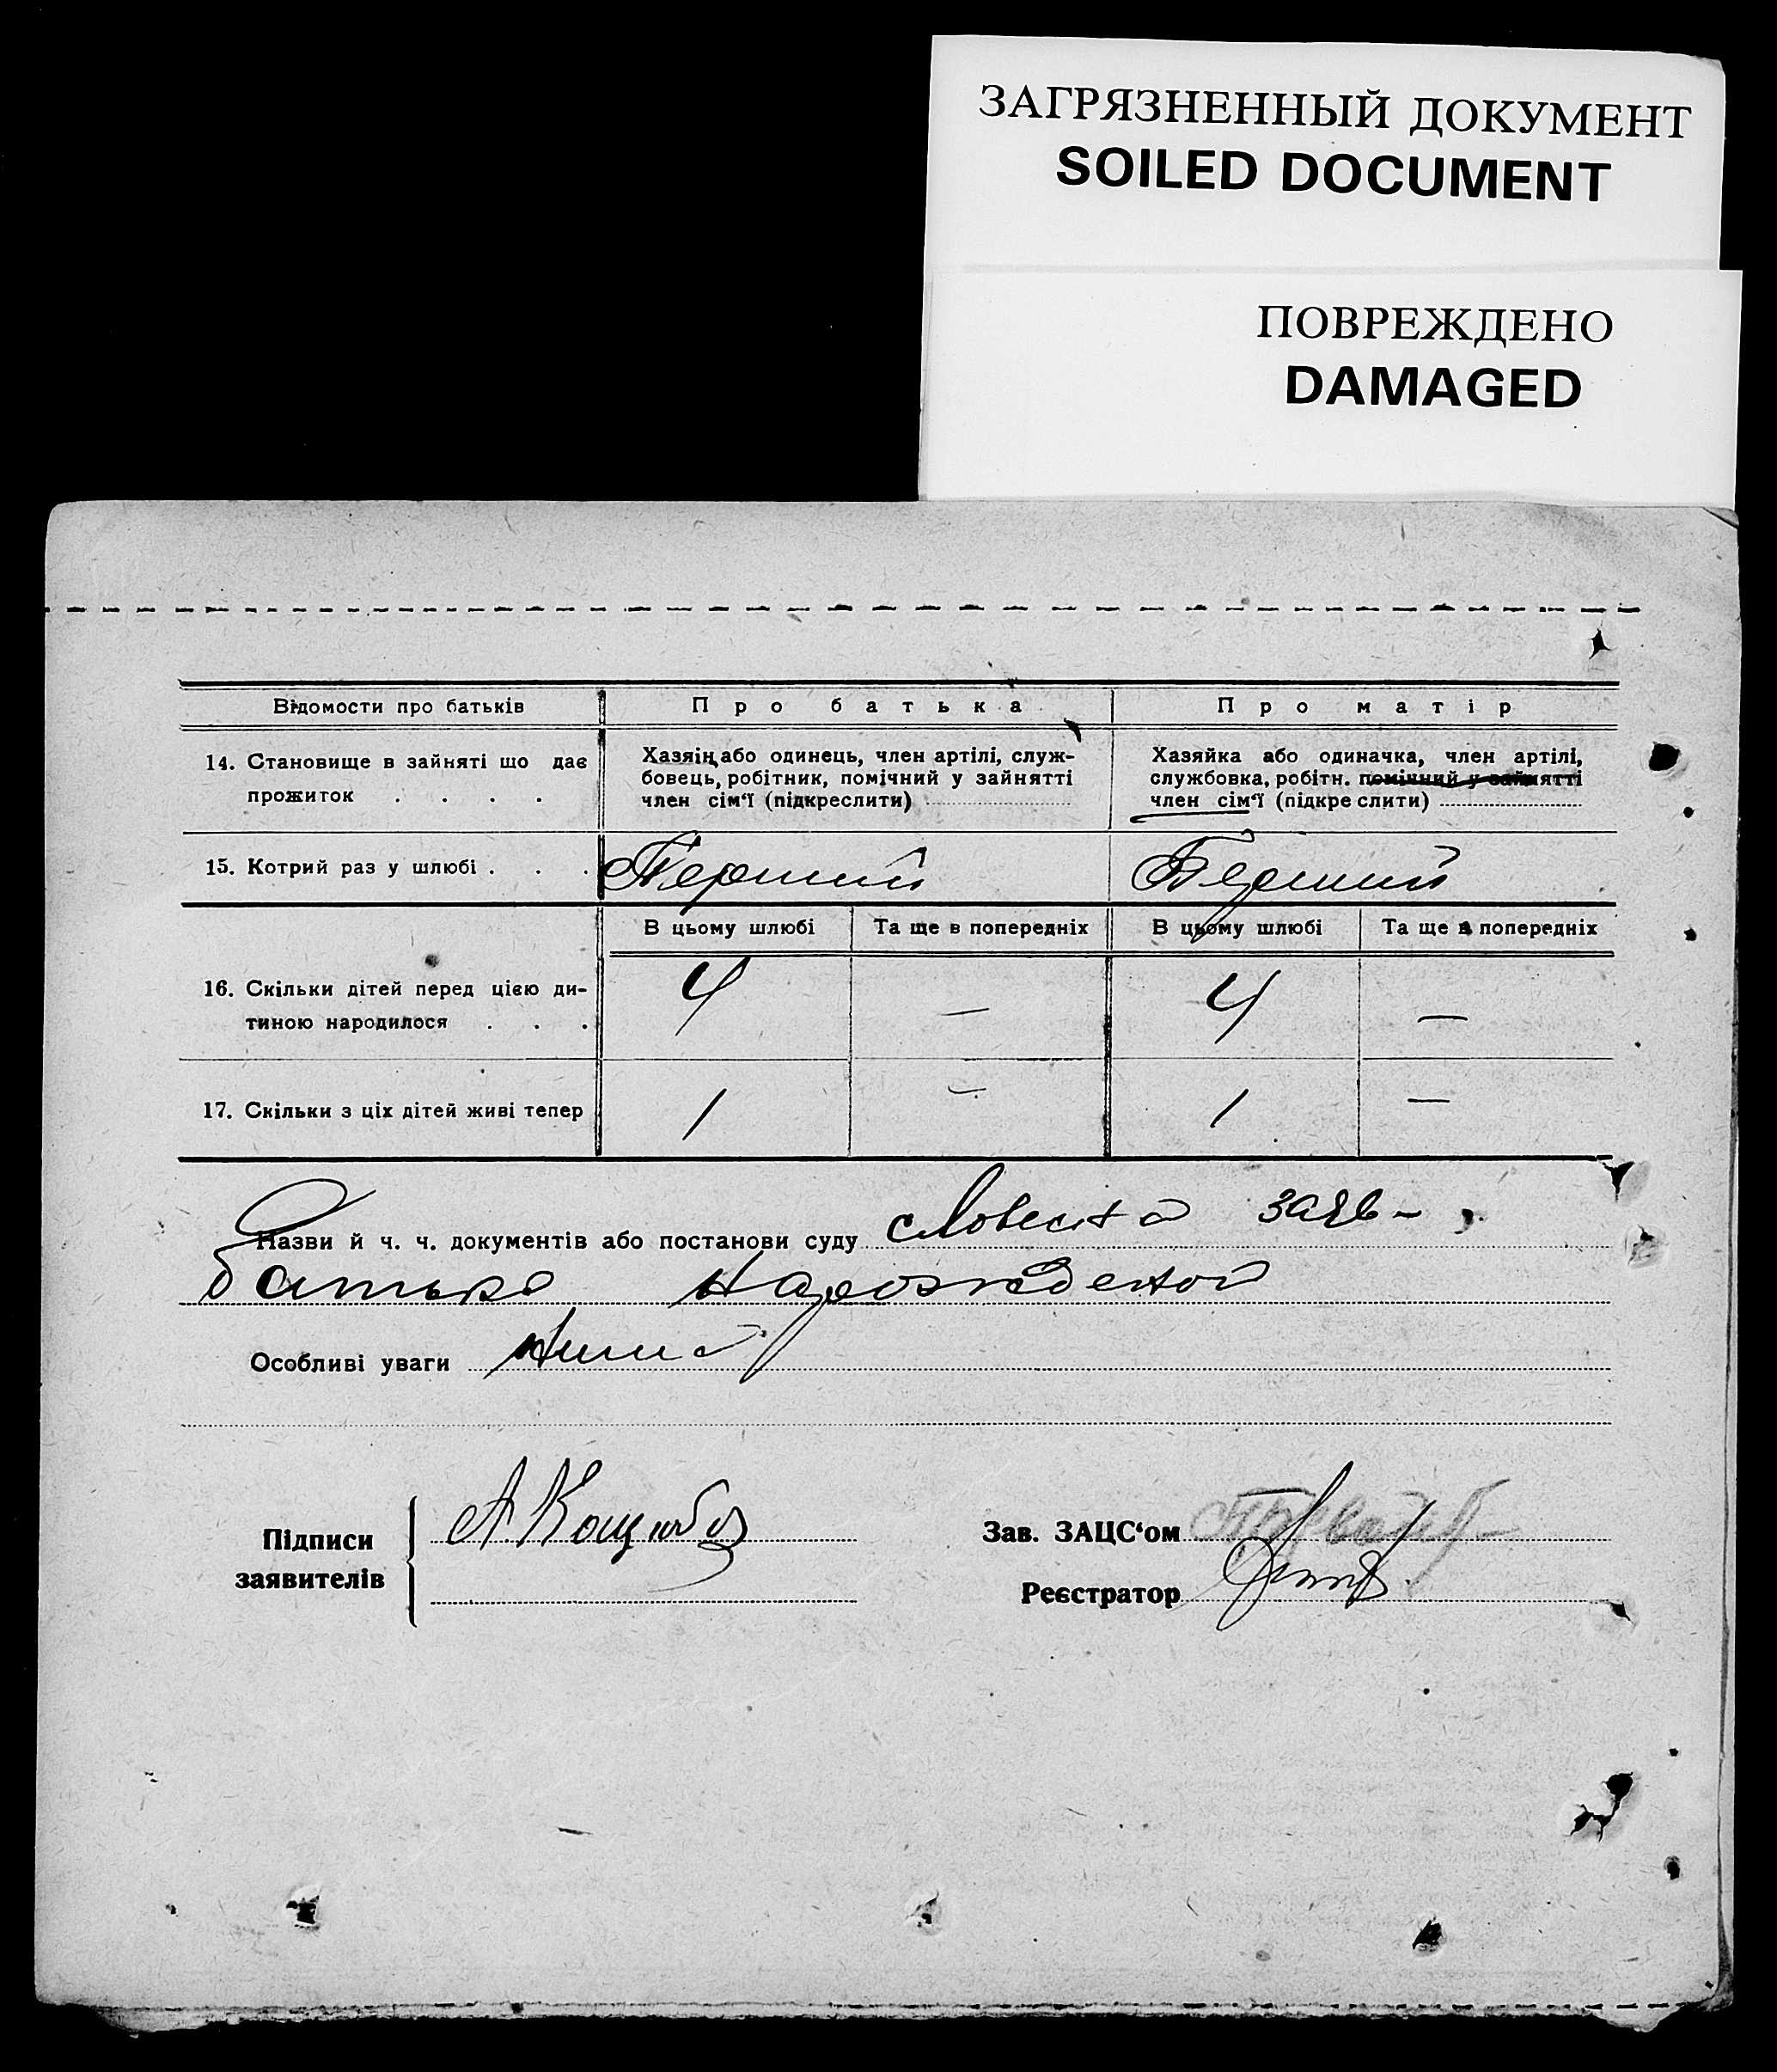 ЗАГРЯЗНЕННЫЙ ДОКУМЕНТ
SOILED DOCUMENT
ПОВРЕЖДЕНО
DAMAGED
Відомости про батьків Про батька Про матір
14. Становище в зайняті що дає прожиток . . . .
Хазяїн або одинець, член артілі, служ-
бовець, робітник, помічний у зайнятті
член сім‘ї (підкреслити)
Хазяйка або одиначка, член артілі,
службовка, робітн. помічний у зайнятті
член сім‘ї (підкреслити)
15. Котрий раз у шлюбі . . . Перший Перший
В цьому шлюбі Та ще в попередніх В цьому шлюбі Та ще в попередніх
16. Скільки дітей перед цією ди-
тиною народилося . . . 4 — 4 —
17. Скільки з ціх дітей живі тепер 1 — 1 —
Назви й ч. ч. документів або постанови суду словесна заяв-
батька
Особливі уваги
Підписи
заявителів
А.
Зав. ЗАЦС‘ом
Реєстратор